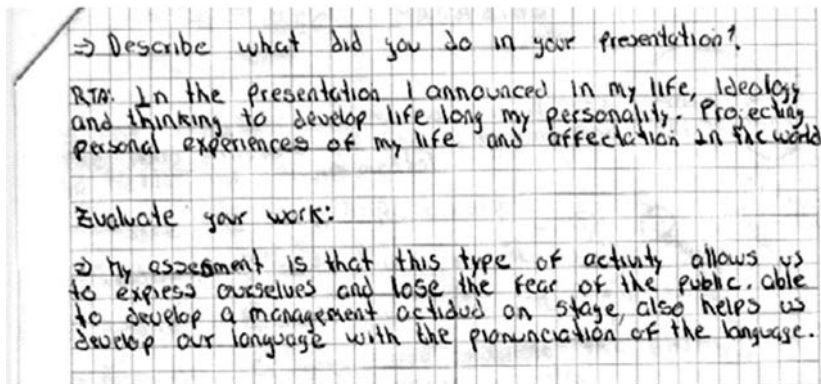 ⇒ Describe what did you do in your presentation?.
RTA: In the Presentation I announced in my life, Ideology
and thinking to develop life long my personality. Projecting
personal experiences of my life and affectation in the world
Evaluate your work:
⇒ My assesment is that this type of activity allows us
to express ourselves and lose the fear of the public. able
to develop a management actidud on stage, also helps us
develop our language with the pronunciation of the language.